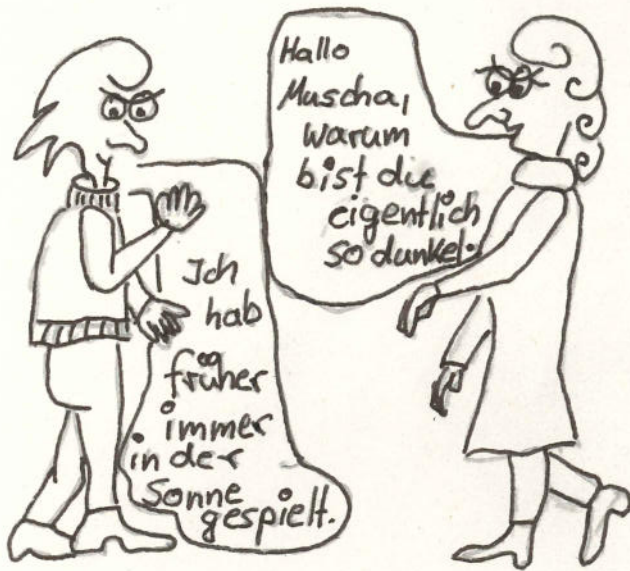 Hallo
Muscha,
warum
bist du
eigentlich
so dunkel.
Ich
hab
früher
immer
in der
Sonne
gespielt.